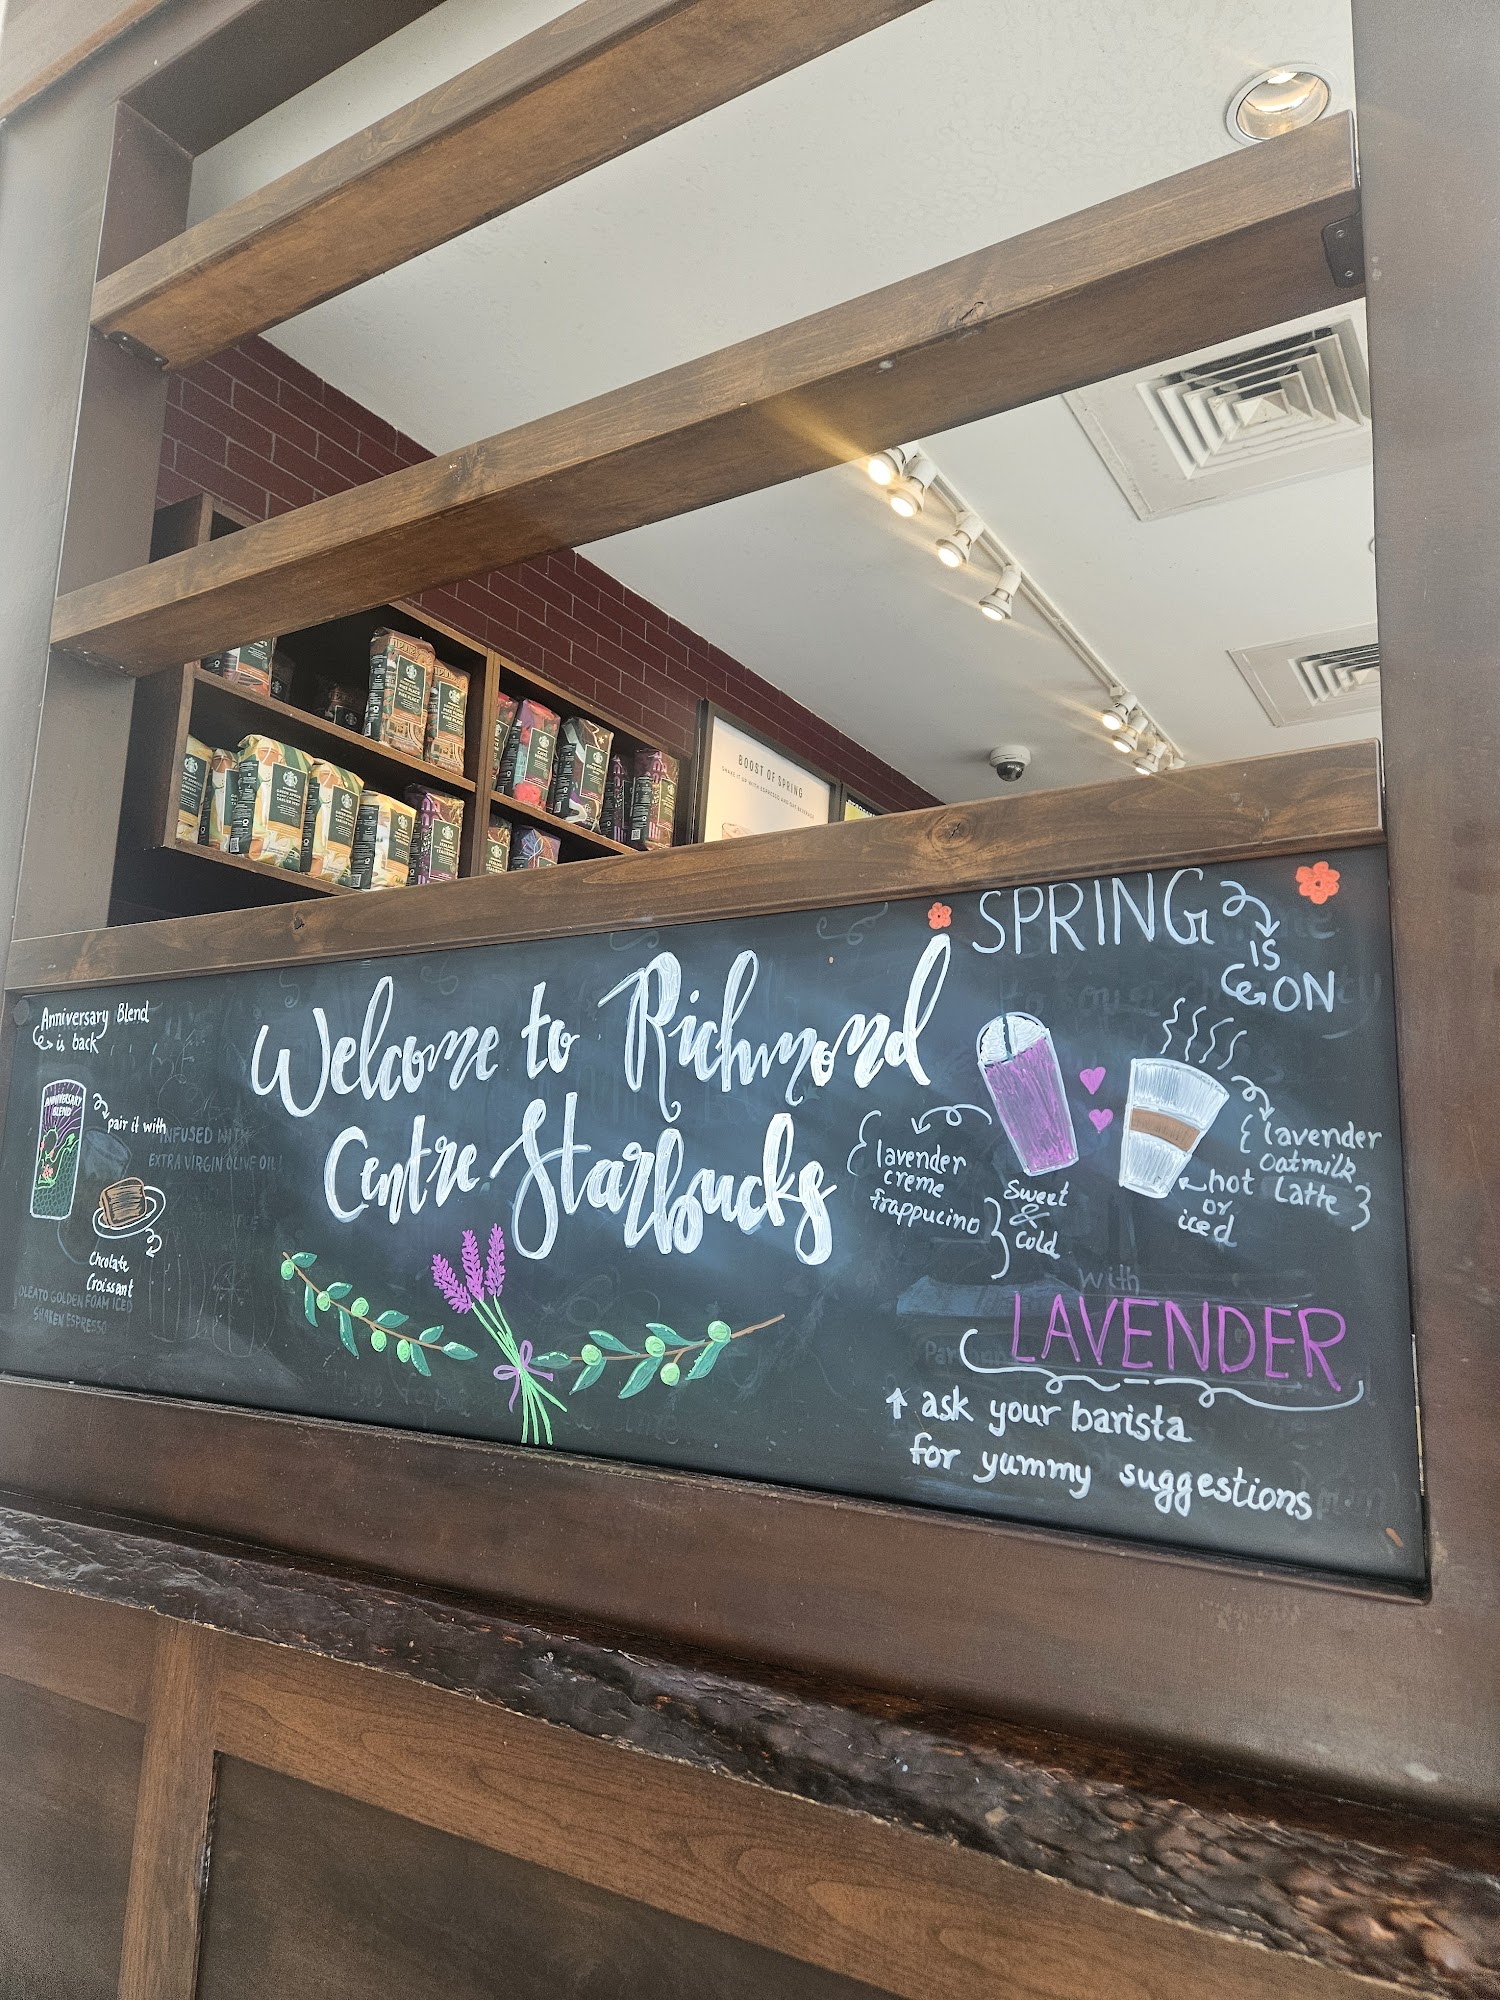 BOOST OF SPRING
SHAKE IT UP WITH ESPRESSO AND OAT BEVERAGE
Anniversary Blend
is back
ANNIVERSARY
BLEND
pair it with
INFUSED WITH
EXTRA VIRGIN OLIVE OIL!
Chcolate
Croissant
OLEATO GOLDEN FOAM ICED
SHAKEN ESPRESSO
Welcome to Richmond
Centre Starbucks
SPRING
IS
ON
lavender
creme
frappucino
Sweet
&
Cold
lavender
oatmilk
Latte
hot
or
iced
with
LAVENDER
ask your barista
for yummy suggestions